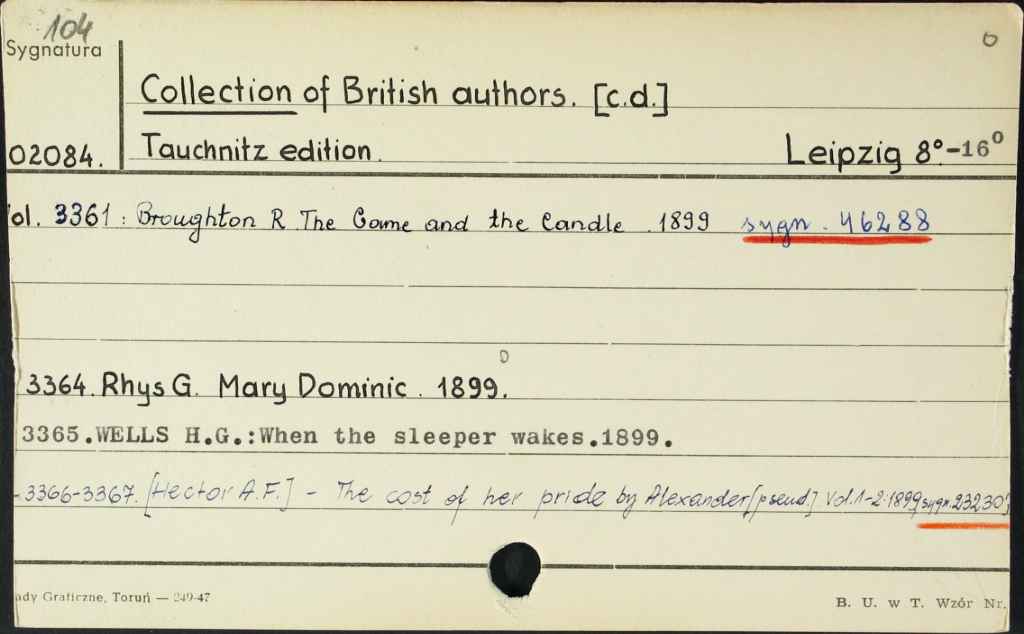 104
Sygnatura
Collection of British authors. [c.d.]
02084. Tauchnitz edition. Leipzig 8°-16°
ol. 3361: Broughton R. The Game and the Candle. 1899 sygn. 46288
3364. Rhys G. Mary Dominic. 1899.
3365.WELLS H.G.:When the sleeper wakes.1899.
-3366-3367. [Hector A.F.] - The cost of her pride by Alexander [pseud.] Vol.1-2. 1899 [sygn. 23230]
ady Graficzne, Toruń — 249-47 B. U. w T. Wzór Nr.